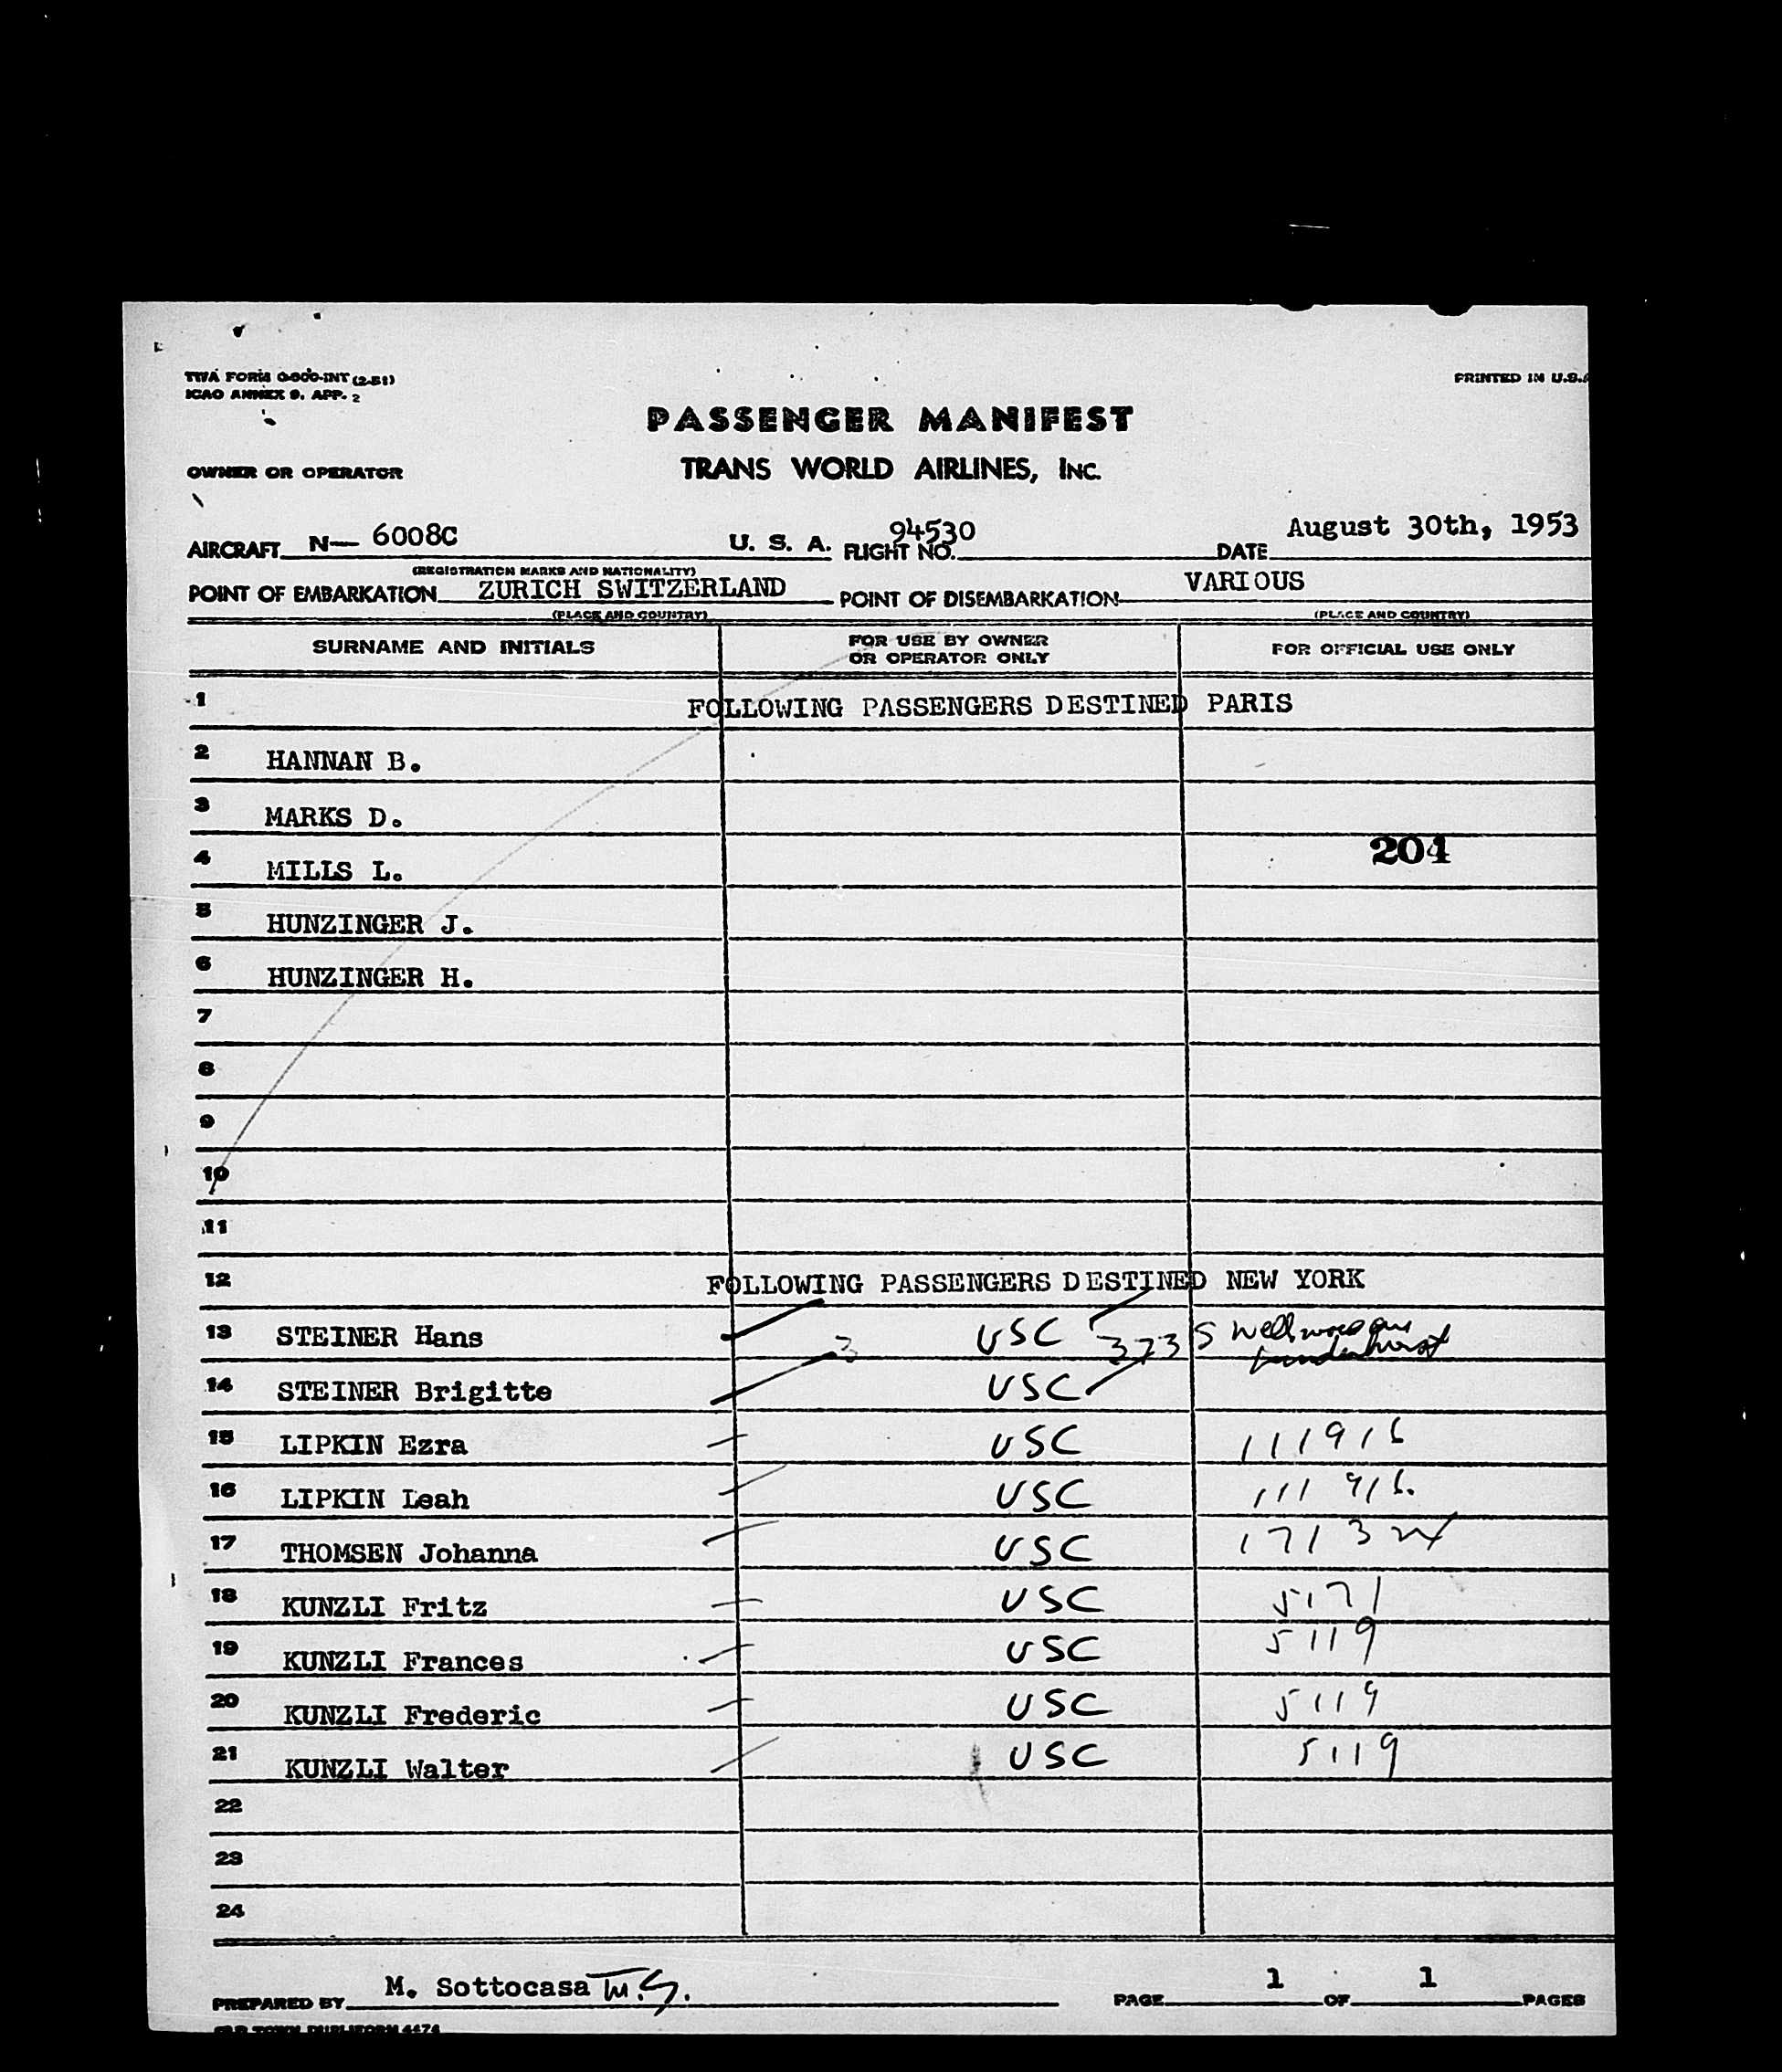 TWA FORM O-600-INT (2-51)
ICAO ANNEX 9. APP. 2
PRINTED IN U.S.A
PASSENGER MANIFEST
OWNER OR OPERATOR
TRANS WORLD AIRLINES, INC.
AIRCRAFT N— 6008C U. S. A. FLIGHT NO. 94530 DATE August 30th, 1953
(REGISTRATION MARKS AND NATIONALITY)
POINT OF EMBARKATION ZURICH SWITZERLAND POINT OF DISEMBARKATION VARIOUS
(PLACE AND COUNTRY) (PLACE AND COUNTRY)
SURNAME AND INITIALS FOR USE BY OWNER OR OPERATOR ONLY FOR OFFICIAL USE ONLY
1 FOLLOWING PASSENGERS DESTINED PARIS
2 HANNAN B.
3 MARKS D.
204
4 MILLS L.
5 HUNZINGER J.
6 HUNZINGER H.
7
8
9
10
11
12 FOLLOWING PASSENGERS DESTINED NEW YORK
13 STEINER Hans USC 3735
14 STEINER Brigitte USC
15 LIPKIN Ezra USC 111916
16 LIPKIN Leah USC 111 916.
17 THOMSEN Johanna USC
18 KUNZLI Fritz USC 5171
19 KUNZLI Frances USC 5119
20 KUNZLI Frederic USC 5119
21 KUNZLI Walter USC 5119
22
23
24
PREPARED BY M. Sottocasa M.S. PAGE 1 OF 1 PAGES